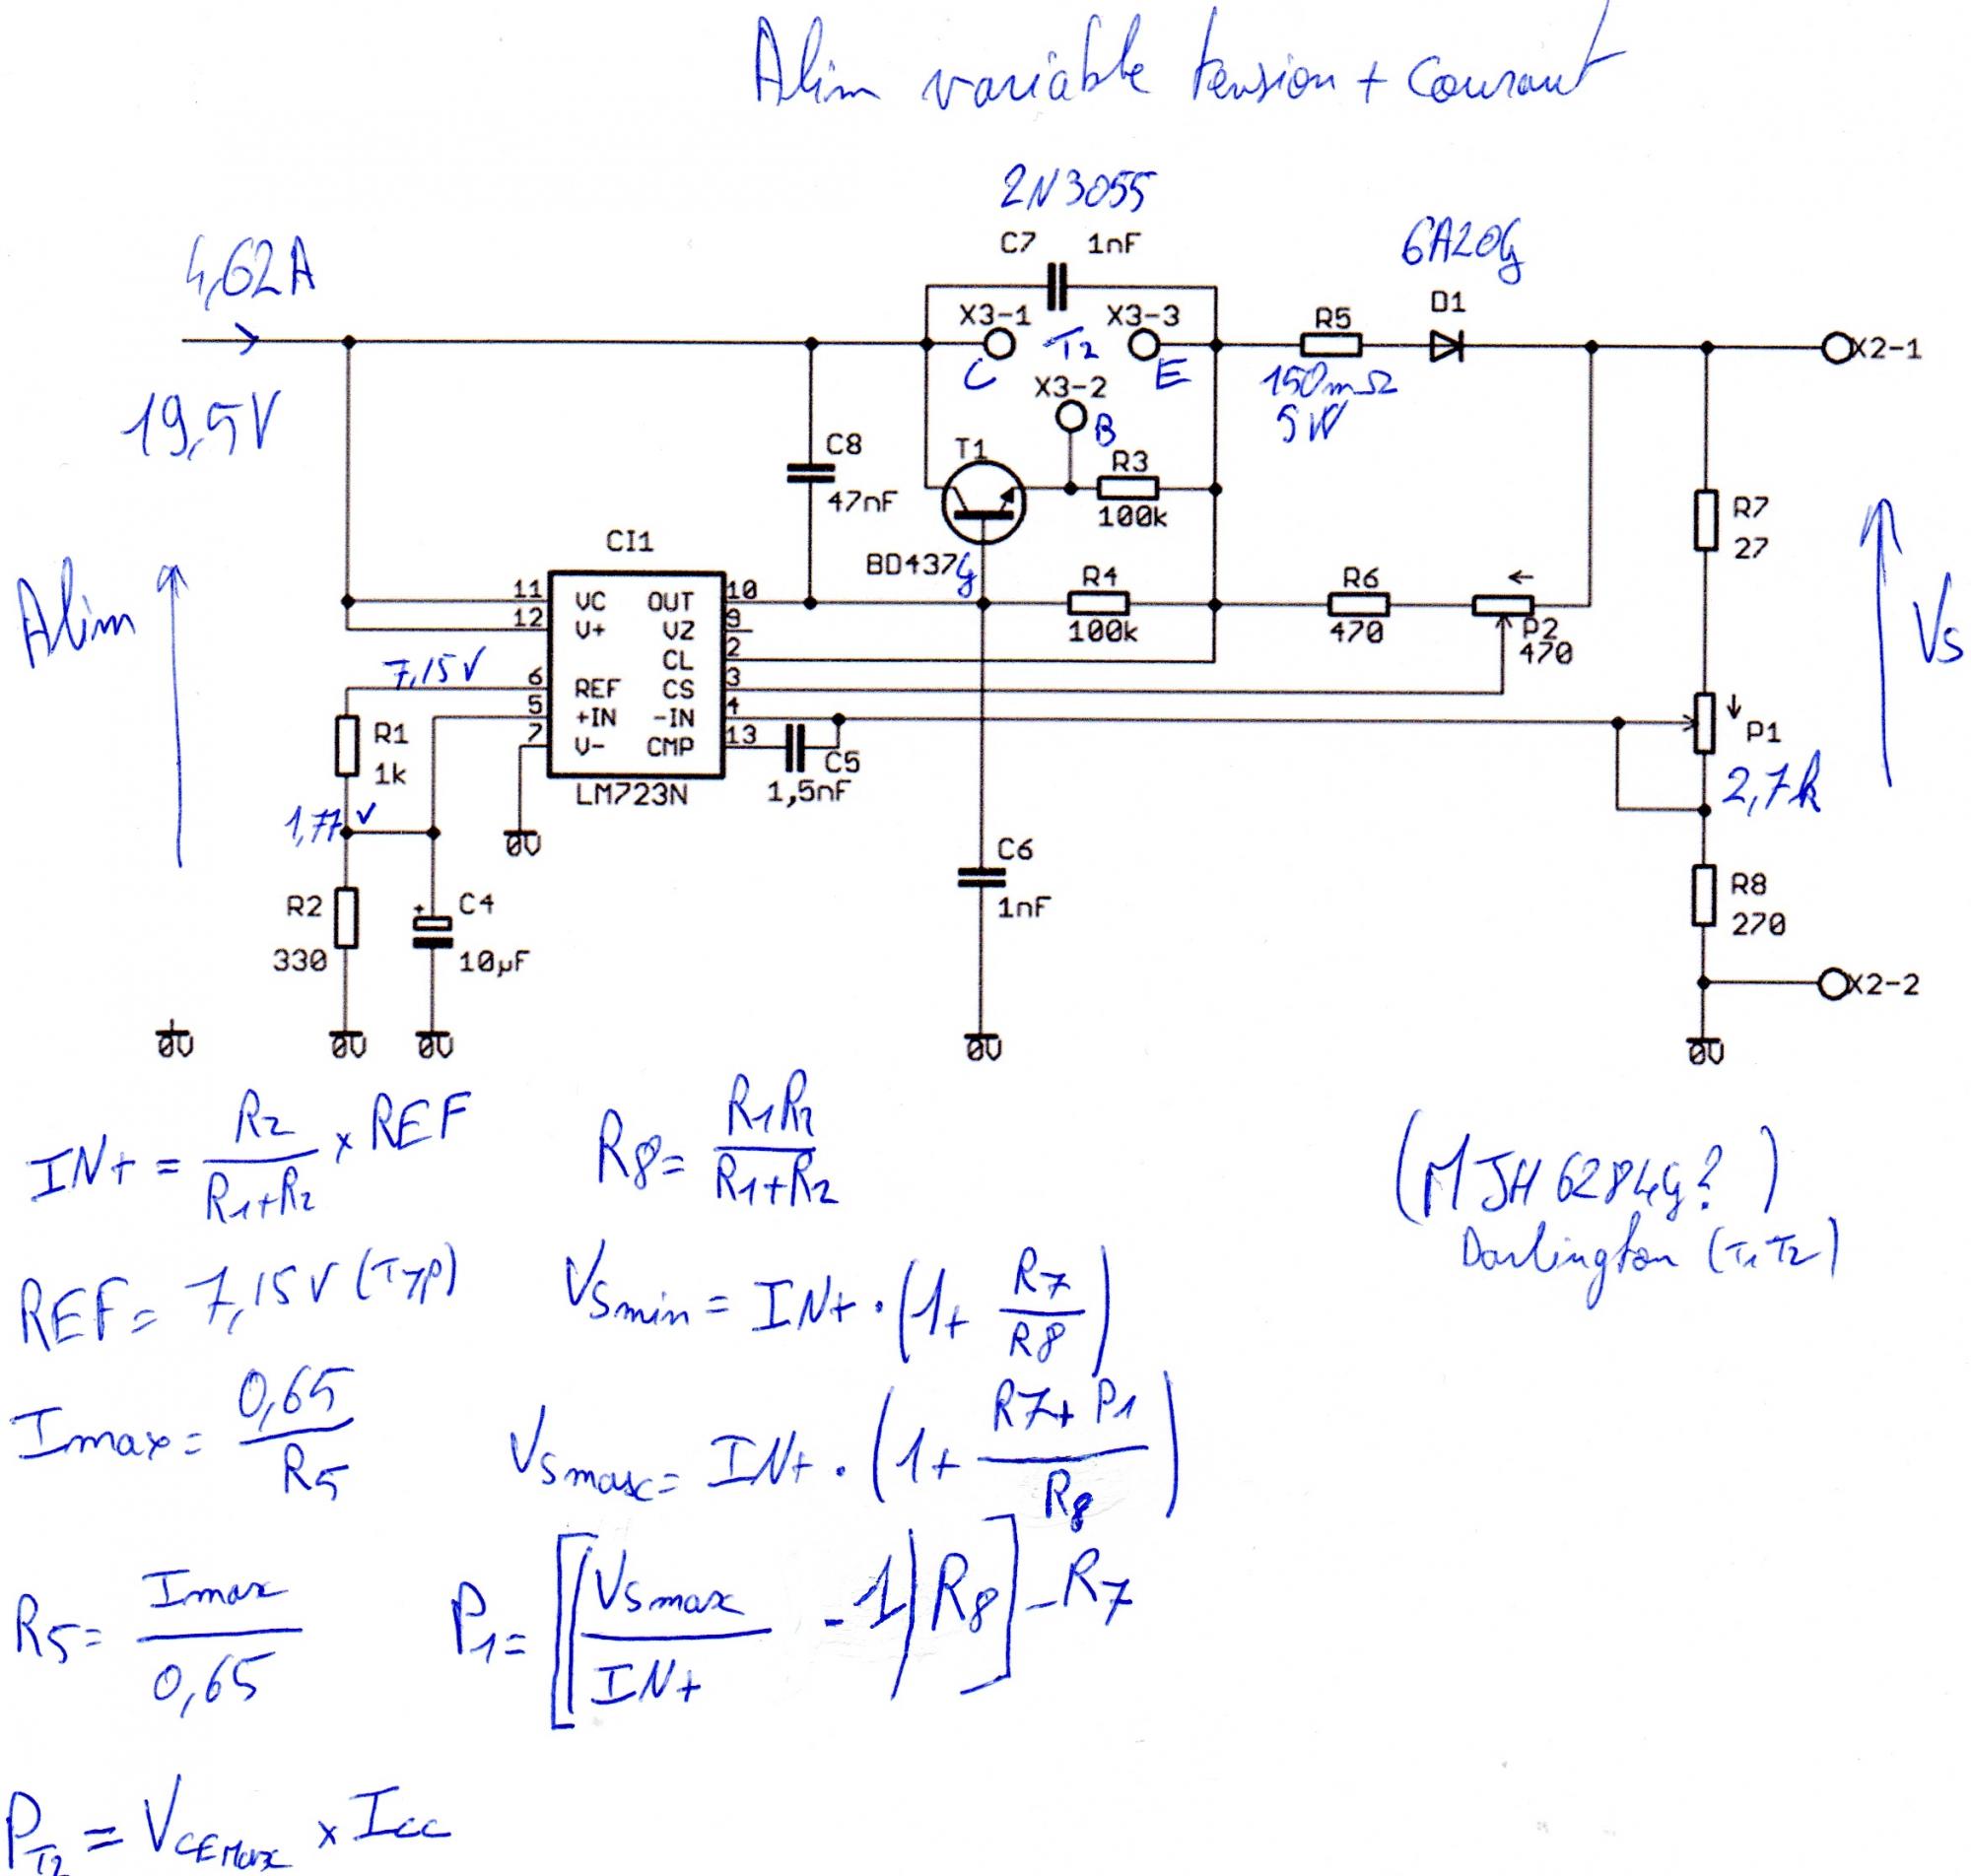 Alim variable tension + Courant
2N3055
4,62A
C7 1nF
6A20G
X3-1 X3-3 R5 D1
T2
C E
X2-1
19,5V
X3-2
B
150mΩ
5W
C8
47nF
T1
R3
100k
R7
27
CI1
BD437G
R4
100k
R6
470
P2
470
Alim
Vs
11 VC OUT 10
12 V+ VZ 9
CL 2
7,15V
6 REF CS 3
5 +IN -IN 4
7 V- CMP 13
LM723N
R1
1k
C5
1,5nF
P1
2,7k
1,77V
0V
R2
330
C4
+
10µF
C6
1nF
R8
270
X2-2
0V 0V 0V 0V 0V
IN+ = R2 / R1+R2 × REF
R8 = R1R2 / R1+R2
(MJH6284G?)
Darlington (T1T2)
REF = 7,15V (Typ)
VSmin = IN+ . (1 + R7 / R8)
Imax = 0,65 / R5
VSmax = IN+ . (1 + R7+P1 / R8)
R5 = Imax / 0,65
P1 = [(VSmax / IN+ - 1) R8] - R7
PT2 = VCEMax × Icc